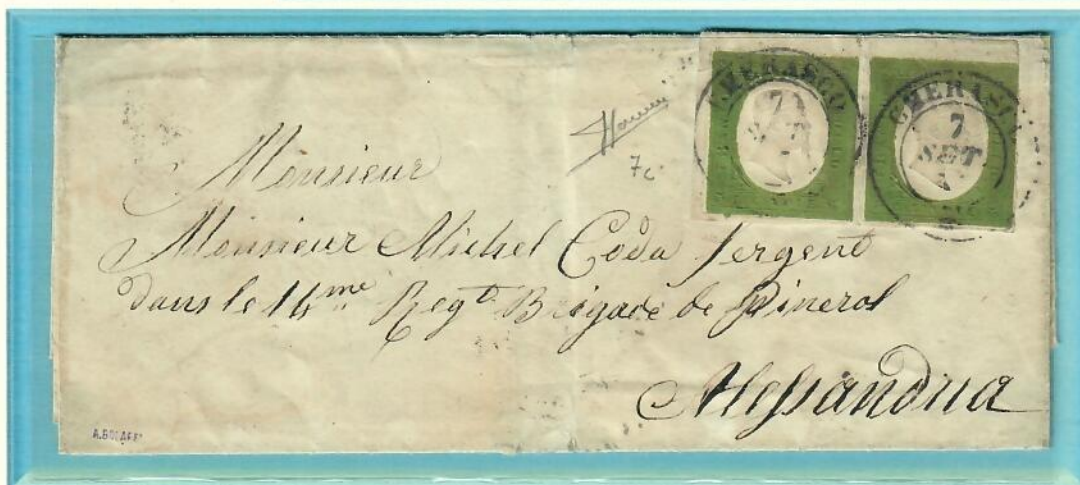 CHERASCO
7
SET
CHERASCO
7
SET
7c
Monsieur
Monsieur Michel Coda Sergent
dans le 14me Regt Brigade de Pinerol
Alessandria
A.BOLAFFI